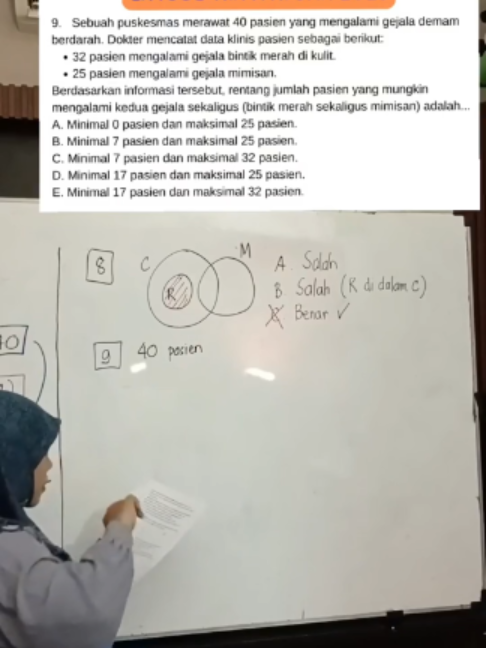 9. Sebuah puskesmas merawat 40 pasien yang mengalami gejala demam
berdarah. Dokter mencatat data klinis pasien sebagai berikut:
• 32 pasien mengalami gejala bintik merah di kulit.
• 25 pasien mengalami gejala mimisan.
Berdasarkan informasi tersebut, rentang jumlah pasien yang mungkin
mengalami kedua gejala sekaligus (bintik merah sekaligus mimisan) adalah...
A. Minimal 0 pasien dan maksimal 25 pasien.
B. Minimal 7 pasien dan maksimal 25 pasien.
C. Minimal 7 pasien dan maksimal 32 pasien.
D. Minimal 17 pasien dan maksimal 25 pasien.
E. Minimal 17 pasien dan maksimal 32 pasien.
8 C R M
A Salah
B Salah (R di dalam C)
Benar ✓
9 40 pasien